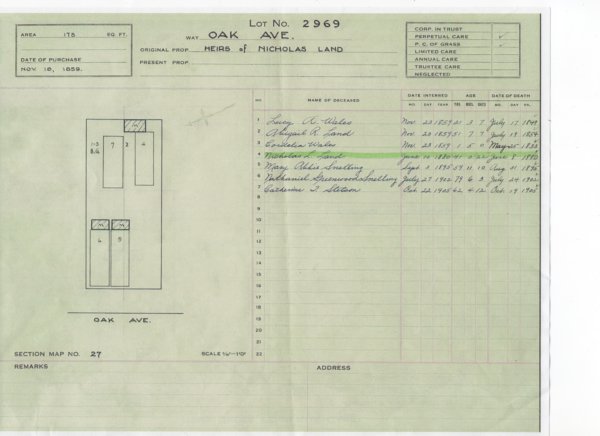 LOT NO. 2969
WAY OAK AVE.
ORIGINAL PROP. HEIRS of NICHOLAS LAND
PRESENT PROP.
AREA 175 SQ. FT.
DATE OF PURCHASE
NOV. 18, 1859.
CORP. IN TRUST
PERPETUAL CARE ✓
P. C. OF GRASS ✓
LIMITED CARE
ANNUAL CARE
TRUSTEE CARE
NEGLECTED
DATE INTERRED AGE DATE OF DEATH
NO. NAME OF DECEASED MO. DAY YEAR YRS. MOS. DAYS MO. DAY YR.
1 Lucy A. Wales Nov. 23 1859 21 3 7 July 17 1849
2 Abigail R. Land Nov. 23 1859 51 7 7 July 19 1854
3 Cordelia Wales Nov. 23 1859 1 5 0 May 25
4 Nicholas L. Land June 10 1880 41 0 22 June 8 1880
5 Mary Abbie Snelling Sept. 2 1895 59 11 10 Aug. 31 1895
6 Nathaniel Greenwood Snelling July 27 1902 79 6 3 July 24 1902
7 Catherine T. Stetson Oct. 22 1905 62 4 12 Oct. 19 1905
8
9
10
11
12
13
14
15
16
17
18
19
20
21
22
1-3
7
2
4
6
5
OAK AVE.
SECTION MAP NO. 27
SCALE
REMARKS
ADDRESS